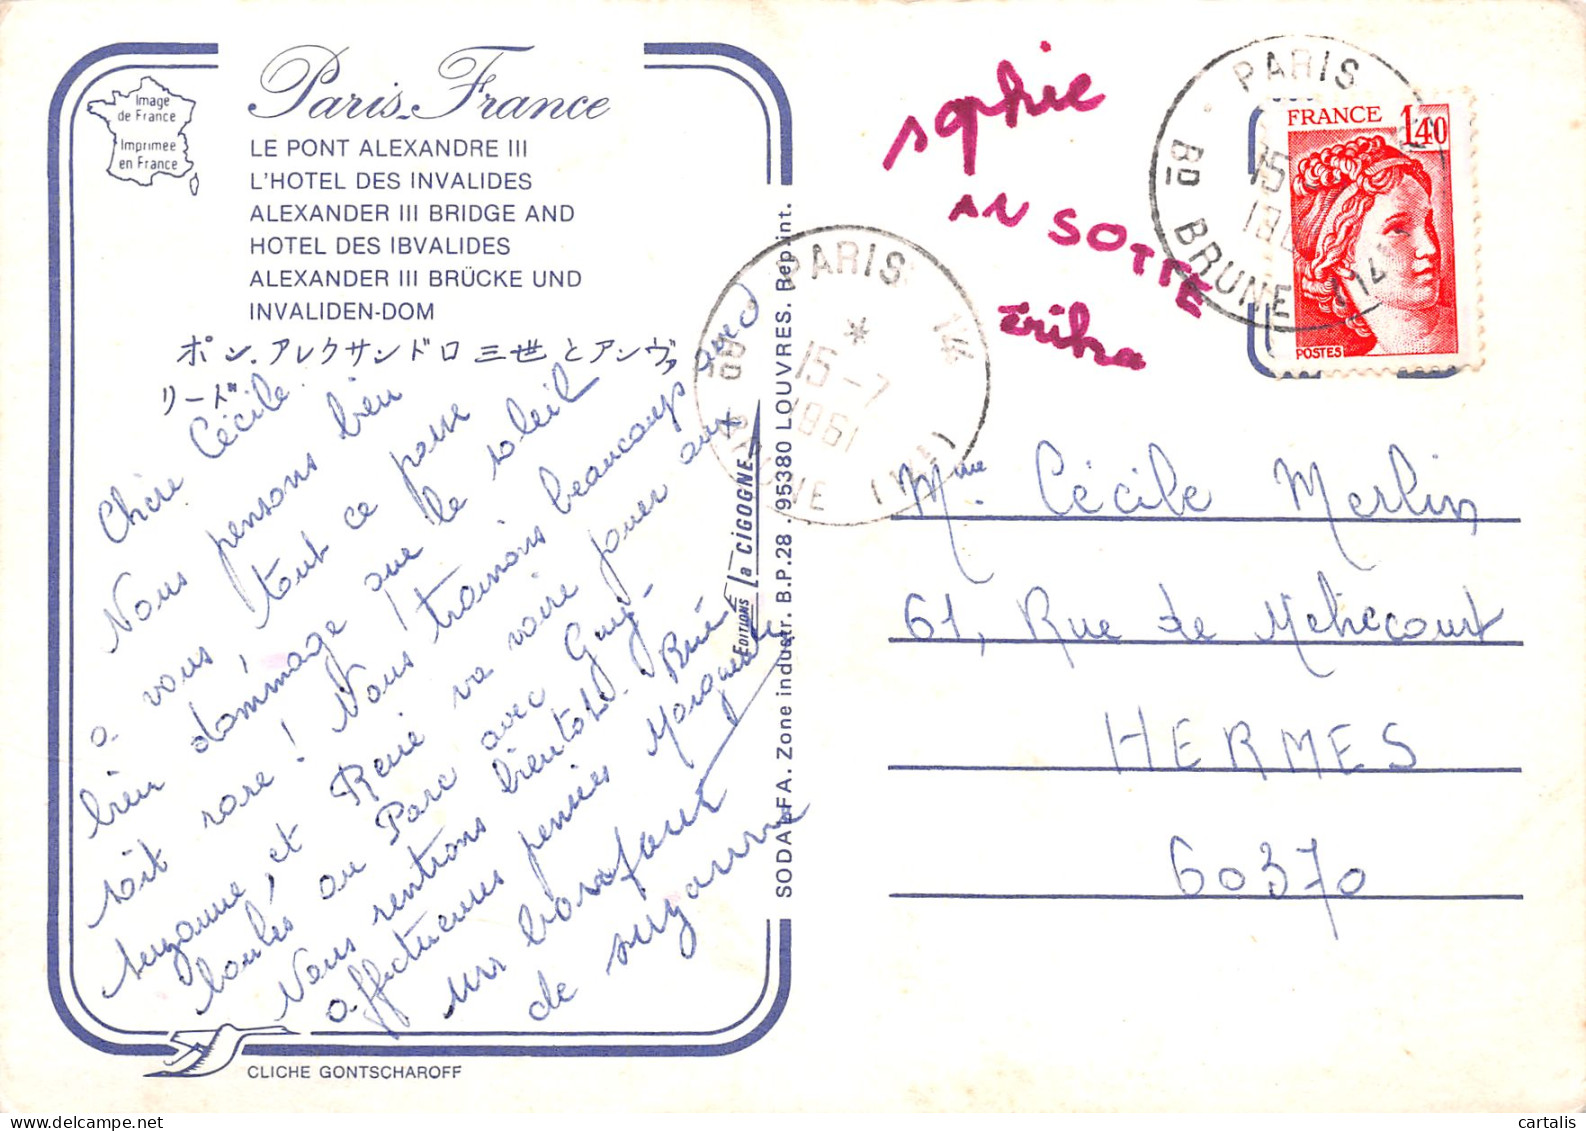 Image
de France
Imprimée
en France
Paris-France
LE PONT ALEXANDRE III
L'HOTEL DES INVALIDES
ALEXANDER III BRIDGE AND
HOTEL DES IBVALIDES
ALEXANDER III BRÜCKE UND
INVALIDEN-DOM
ポン.アレクサンドロ三世とアンヴァ
リード.
Chère Cécile.
Nous pensons bien
à vous, tout ce passe
bien dommage que le soleil
soit rare! Nous traînons beaucoup avec
suzanne, et René va voire jouer aux
boules au Parc avec Guy-
Nous rentrons bientôt. René
affectueuses pensées Marguerite
de suzanne
CLICHE GONTSCHAROFF
EDITIONS la CIGOGNE
SODALFA. Zone industr. B.P.28 . 95380 LOUVRES. Rep. int.
PARIS 14
15-7
1981
BD BRUNE (14E)
sophie
AN SOTTE
érika
PARIS
15
BD BRUNE (14E)
FRANCE 1,40
POSTES
Mme. Cécile Merlin
61, Rue de Méhécourt
HERMES
60370
cartalis